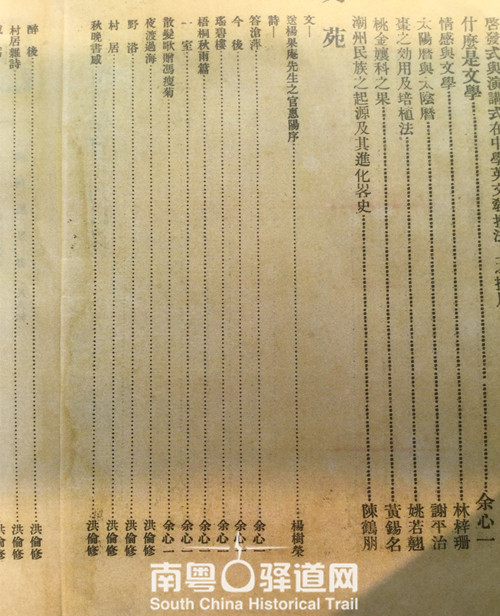 啓發式與演講式在中學英文教授法上
什麼是文學 余心一
情感與文學 林梓珊
太陽曆與太陰曆 謝平治
棗之効用及培植法 姚若翹
桃金孃科之果 黃錫名
潮州民族之起源及其進化畧史 陳鶴朋
苑
文—
送楊果庵先生之官惠陽序 楊樹榮
詩—
答滄萍 余心一
今後 余心一
瑤碧樓 余心一
梧桐秋雨篇 余心一
一室 余心一
散髮歌贈馮瘦菊 余心一
夜渡過海 洪倫修
野浴 洪倫修
村居 洪倫修
秋晚書感 洪倫修
醉後 洪倫修
村居雜詩 洪倫修
洪倫修
南粤古驿道网
South China Historical Trail